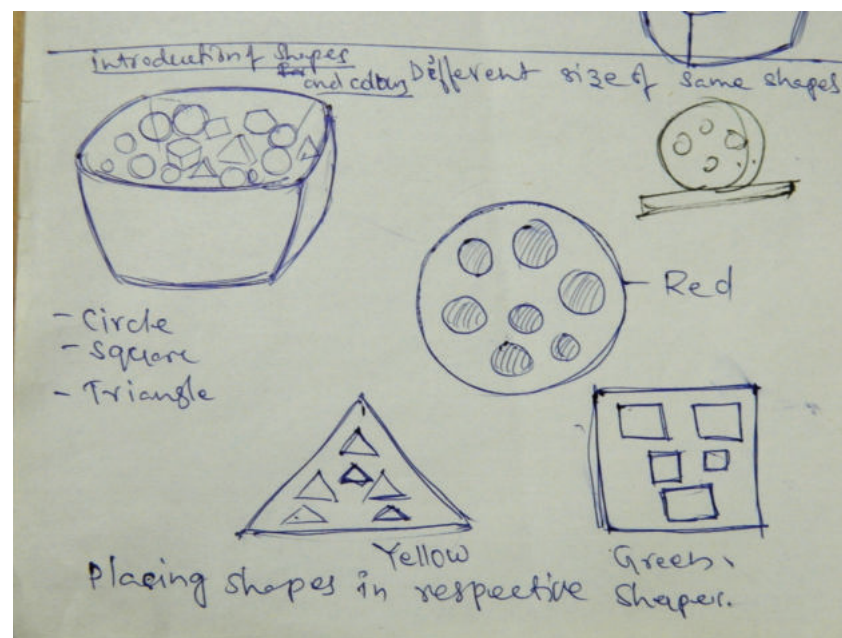 introduction of shapes
and colours
Different size of same shapes
Red
- Circle
- Square
- Triangle
Yellow
Green.
Placing shapes in respective shapes.